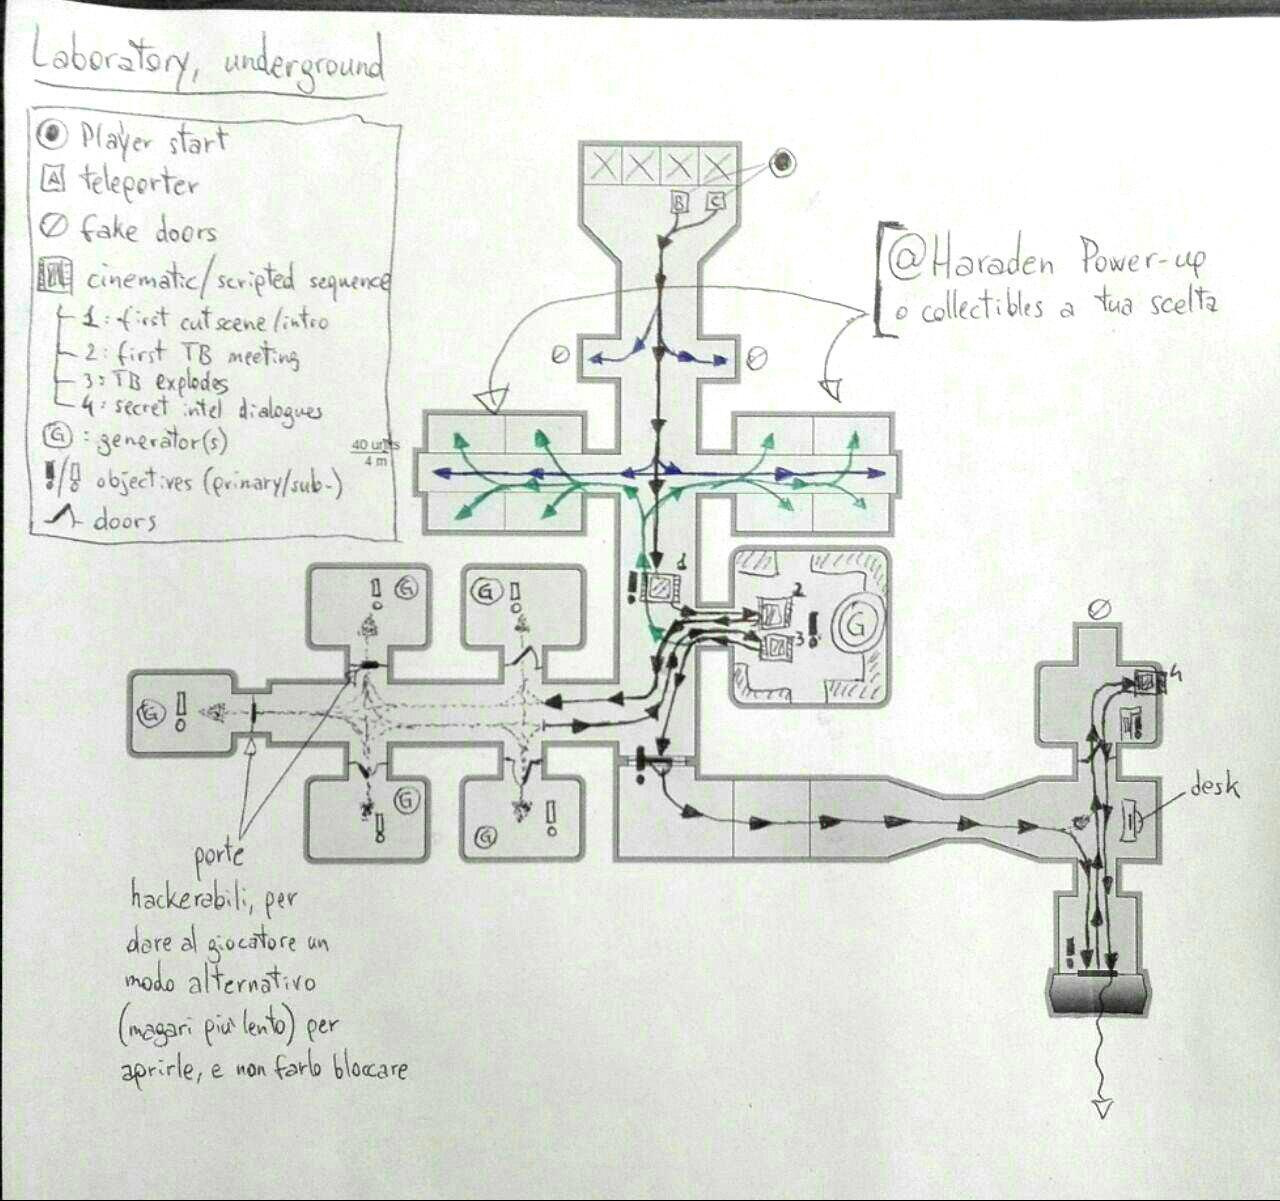 Laboratory, underground
Player start
A teleporter
fake doors
cinematic/scripted sequence
1: first cutscene/intro
2: first TB meeting
3: TB explodes
4: secret intel dialogues
G : generator(s)
!/! objectives (primary/sub-)
doors
40 units
4 m
B C
@Haraden Power-up
o collectibles a tua scelta
1
2
3
!
G
!
G
G
!
G
!
!
G
G
!
!
!
4
!
desk
!
porte
hackerabili, per
dare al giocatore un
modo alternativo
(magari più lento) per
aprirle, e non farlo bloccare